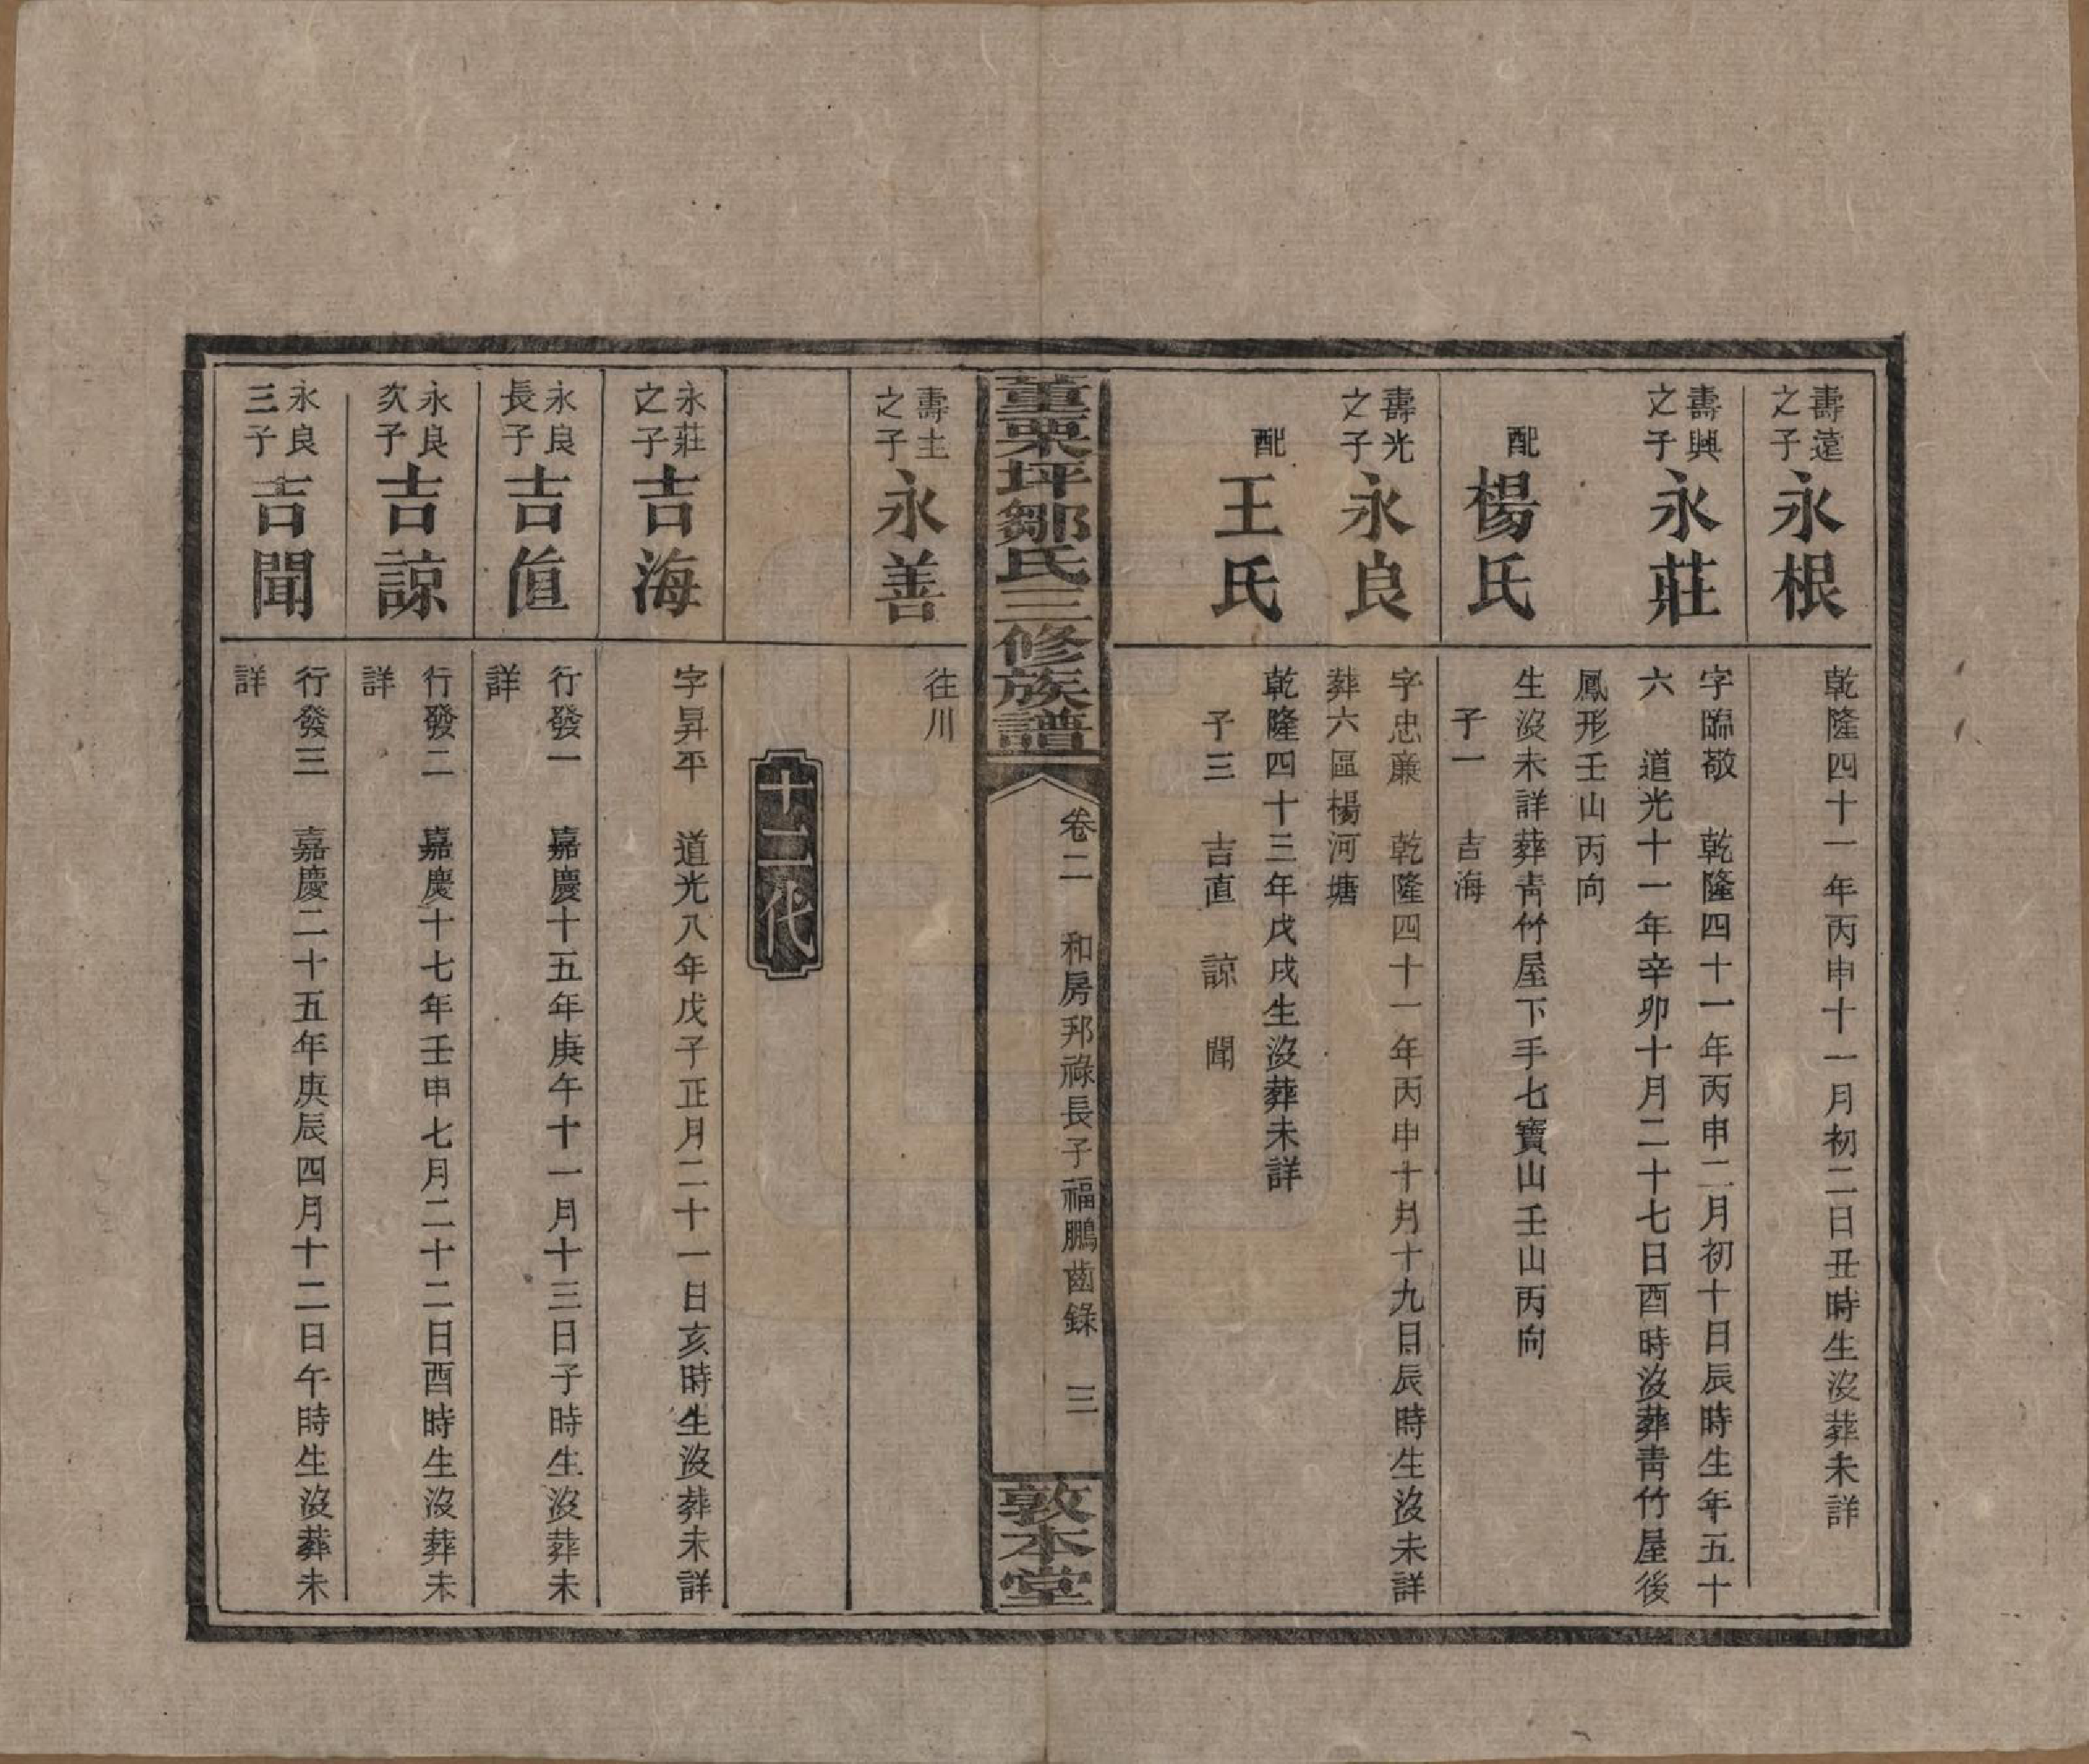 壽遠之子
永根
乾隆四十一年丙申十一月初二日丑時生沒葬未詳
壽興之子
永莊
字臨敬　乾隆四十一年丙申二月初十日辰時生年五十
六　道光十一年辛卯十月二十七日酉時沒葬靑竹屋後
鳳形壬山丙向
配
楊氏
生沒未詳葬靑竹屋下手七寶山壬山丙向
子一　吉海
壽光之子
永良
字忠亷　乾隆四十一年丙申十月十九日辰時生沒未詳
葬六區楊河塘
配
王氏
乾隆四十三年戊戌生沒葬未詳
子三　吉直　諒　聞
董栗坪鄒氏三修族譜
卷二　和房邦祿長子福鵬齒錄　三
敦本堂
壽土之子
永善
往川
十二代
永莊之子
吉海
字昇平　道光八年戊子正月二十一日亥時生沒葬未詳
永良長子
吉直
行發一　嘉慶十五年庚午十一月十三日子時生沒葬未
詳
永良次子
吉諒
行發二　嘉慶十七年壬申七月二十二日酉時生沒葬未
詳
永良三子
吉聞
行發三　嘉慶二十五年庚辰四月十二日午時生沒葬未
詳